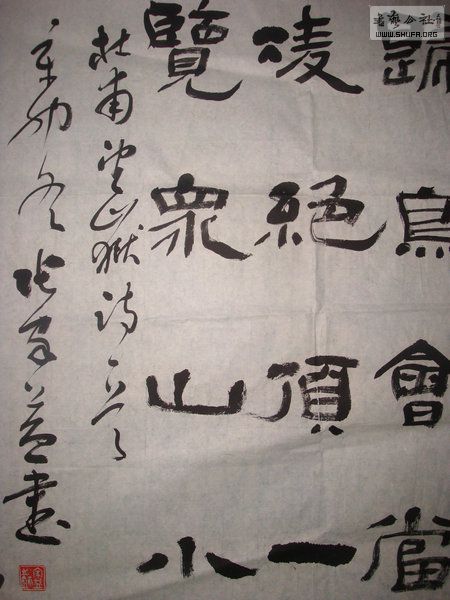 歸鳥會當
凌絕頂一
覽眾山小
杜甫望嶽詩一首
辛卯冬張益書
書藝公社
WWW.SHUFA.ORG